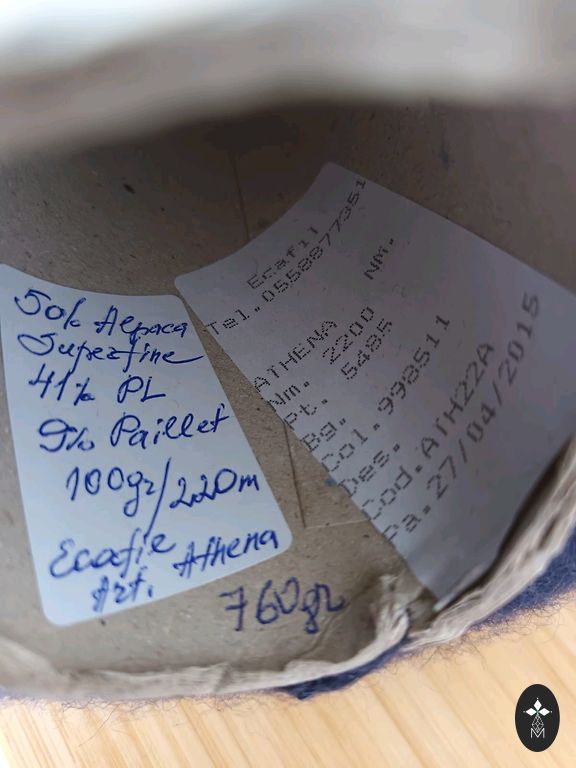 50% Alpaca
Superfine
41% PL
9% Paillet
100gr/220m
Ecafil
Art. Athena
760gr
Ecafil
Tel.0558877351
ATHENA NM.
Nm. 2200
Pt. 5485
Bg.
Col.998511
Des.
Cod.ATH22A
Pa.27/04/2015
M